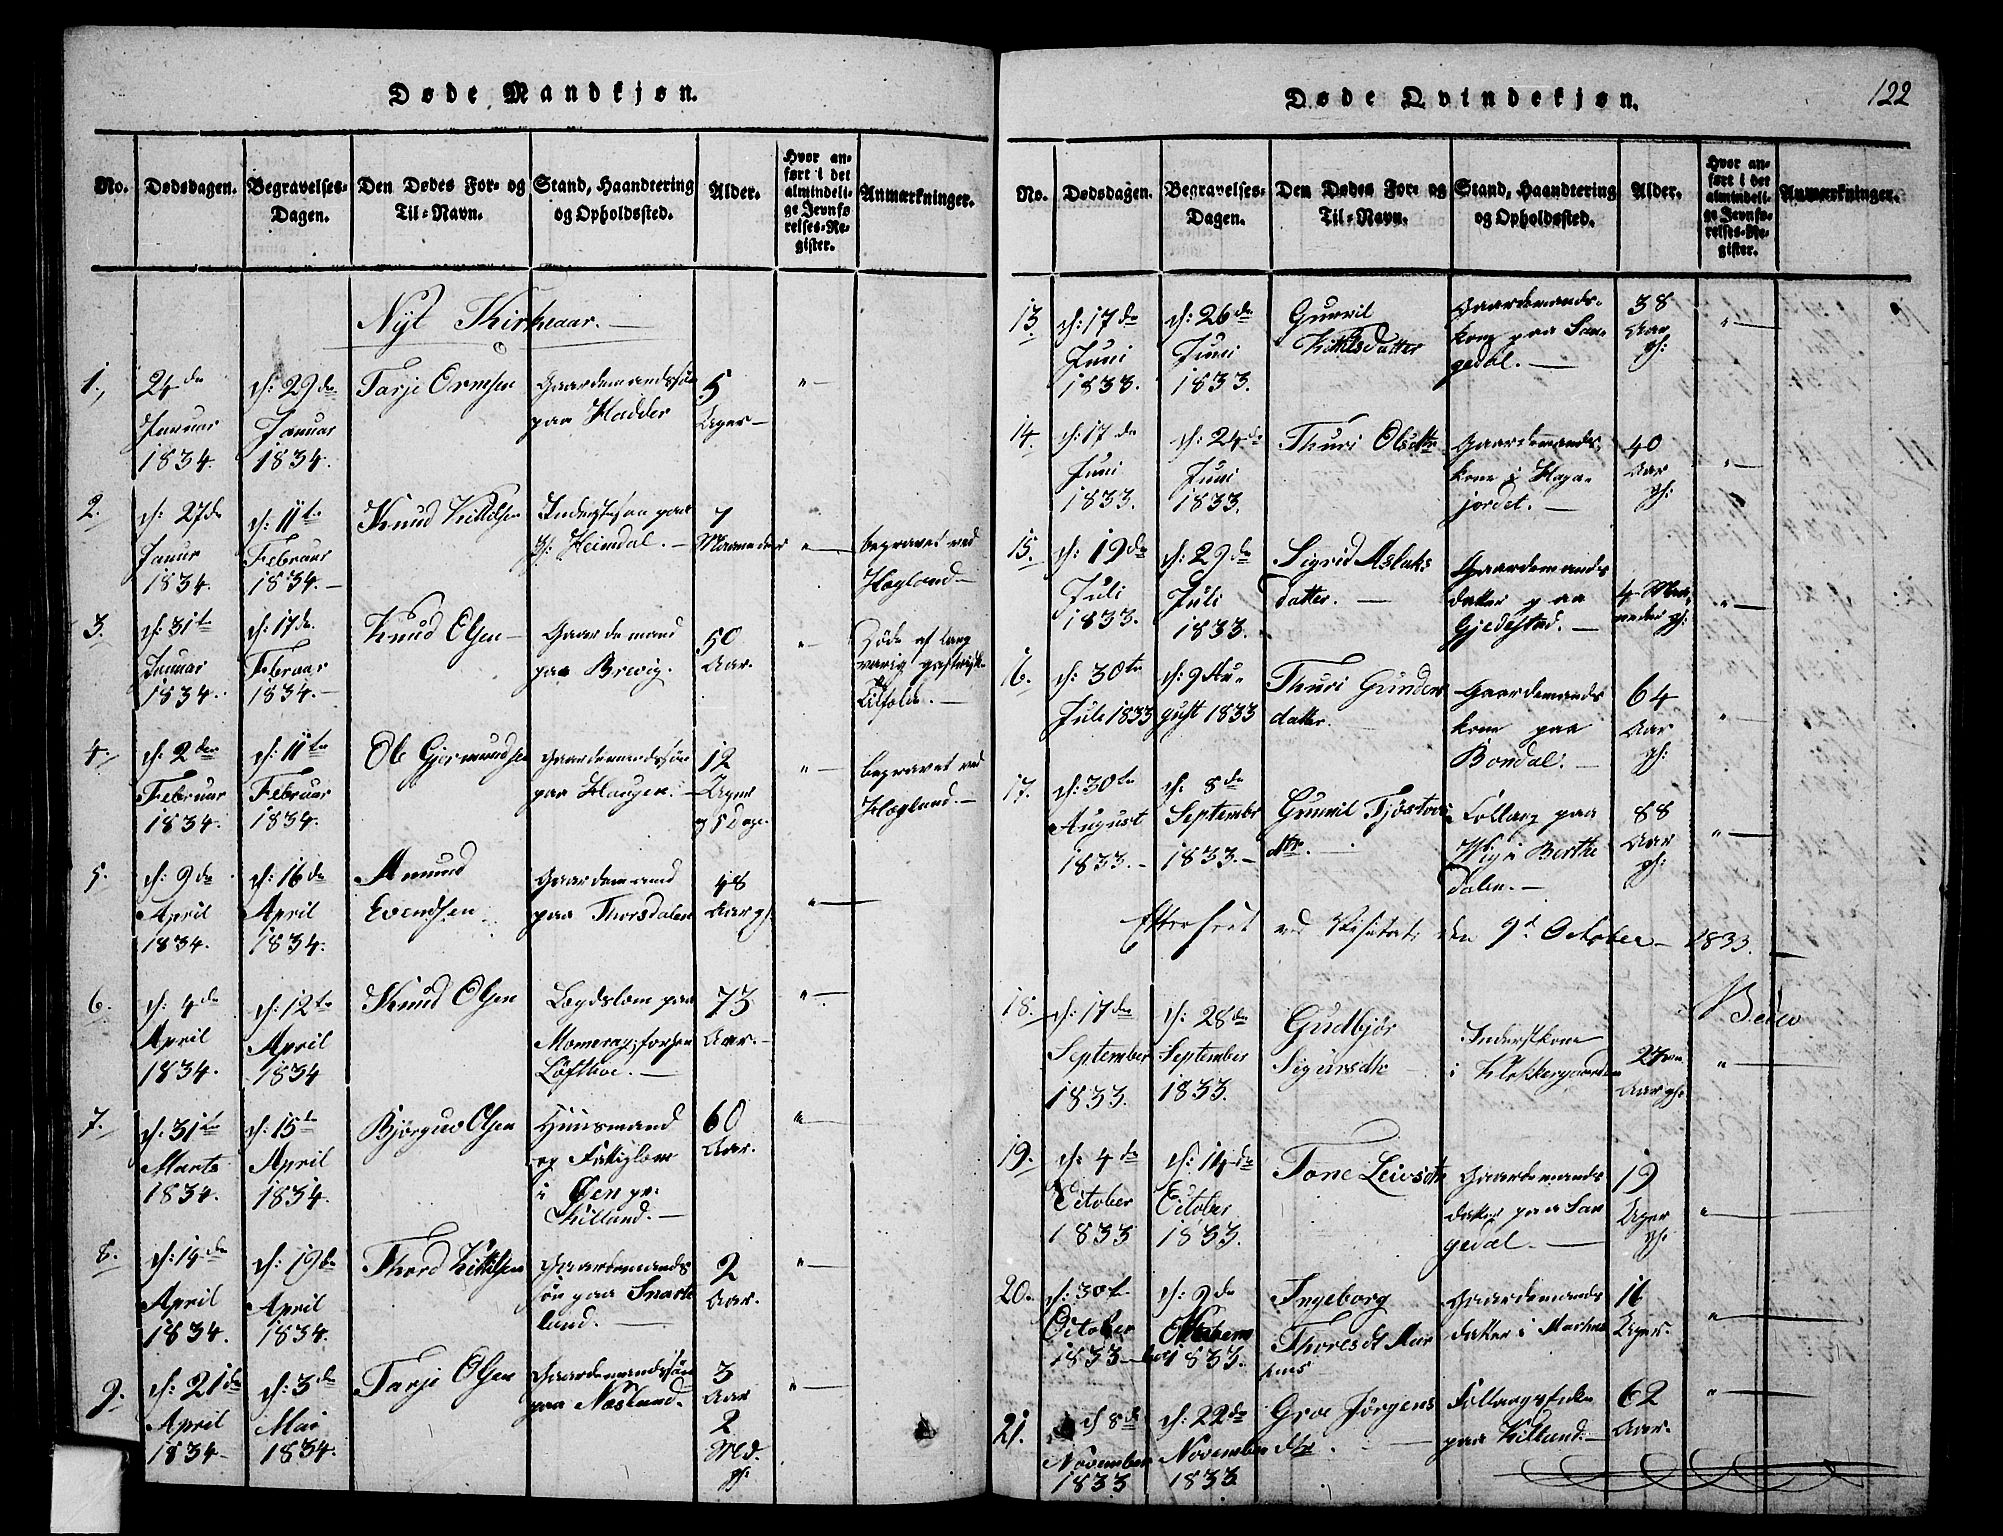 Døde Mandkjøn.
No. Dødsdagen. Begravelses-Dagen. Den Dødes For- og Til-Navn. Stand, Haandtering og Opholdssted. Alder. Hvor anført i det almindelige Jevnførelses-Register. Anmærkninger.
Nyt Kirkeaar. —
1., 24de Januar 1834. d: 29de Januar 1834. Tarje Ormsen Gaardemandssøn paa Hadder 5 Uger — " —
2. d: 27de Janur 1834. d: 11te Februar 1834. — Knud Kittilsen Inderstsøn paa Heimdal. — 7 Maaneder " — begravet ved Høgland —
3. d: 31te Januar 1834. d: 17de Februar 1834. — Knud Olsen — Gaardemand paa Brevig. 50 Aar. " — Døde af lang varig gastrisk
4. d: 2den Februar 1834. d: 11te Februar 1834. Ole Gjermundsen Gaardemandssøn paa Haugen. — 12 Uger og 5 Dage. " — begravet ved Høgland. —
5. d: 9de April 1834. d: 16de April 1834. Amund Evendsen Gaardemand paa Thorsdalen 48 Aar gl: " —
6. d: 4de April 1834. d: 12te April 1834 Knud Olsen Lægdslem paa 73 Aar. — " —
7. d: 31te Marts 1834. d: 15te April 1834. Bjørguv Olsen Huusmand og Fattiglem i Øen pr: Killand. — 60 Aar. " —
8. d: 14de April 1834. d: 19de April 1834. Thord Kittilsen Gaardemands søn paa Snarteland. — 2 Aar. " —
9. d: 21de April 1834 — d: 3de Mai 1834. Tarje Olsen Gaardemandssøn paa Næsland. 3 Aar 2 Md. gl: " —
Døde Qvindekjøn.
122
No. Dødsdagen. Begravelses-Dagen. Den Dødes For- og Til-Navn. Stand, Haandtering og Opholdssted. Alder. Hvor anført i det almindelige Jevnførelses-Register. Anmærkninger.
13. d: 17de Juni 1833. d: 26de Juni 1833. Gunvil Kittilsdatter Gaardemands- kone paa Sangedal. — 38 Aar gl: " —
14. d: 17de Juni 1833. d: 24de Juni 1833. Thuri Olsdtr Gaardemands kone i Hagajordet. — 40 Aar gl: " —
15. d: 19de Juli 1833. d: 29de Juli 1833. Sigrid Aslaks datter. — Gaardemands datter paa Gjedestad. — 4 Maaneder gl: " —
16. d: 30te Juli 1833 d: 9 August 1833 Thuri Gunders datter. Gaardemands kone paa Bondal. — 64 Aar gl: "
17. d: 30te August 1833. — d: 8de September 1833. — Gunvil Tjøstovs dtr. — Follaug paa Wig i Berthe dalen. — 88 Aar gl: " —
Efterseet ved Visitats den 9d October — 1833.
18. d: 17de September 1833. d: 28de September 1833. Gudbjør Sigursdtr Inderstkone i Klokkergaarden 27 Aar gl: " —
19. d: 4de October 1833 d: 14de October 1833. Tone Leivsdtr Gaardemands datter paa Sangedal. — 19 Uger gl: " —
20. d: 30te October 1833 — d: 9de 1833. Ingeborg Thoresdt Gaardemands datter i 16 Uger. " —
21. d 8de November 1833 d: 22de November 1833 Groe Jørgens dtr. — Follaugsfolk paa Killand. — 62 Aar. " —